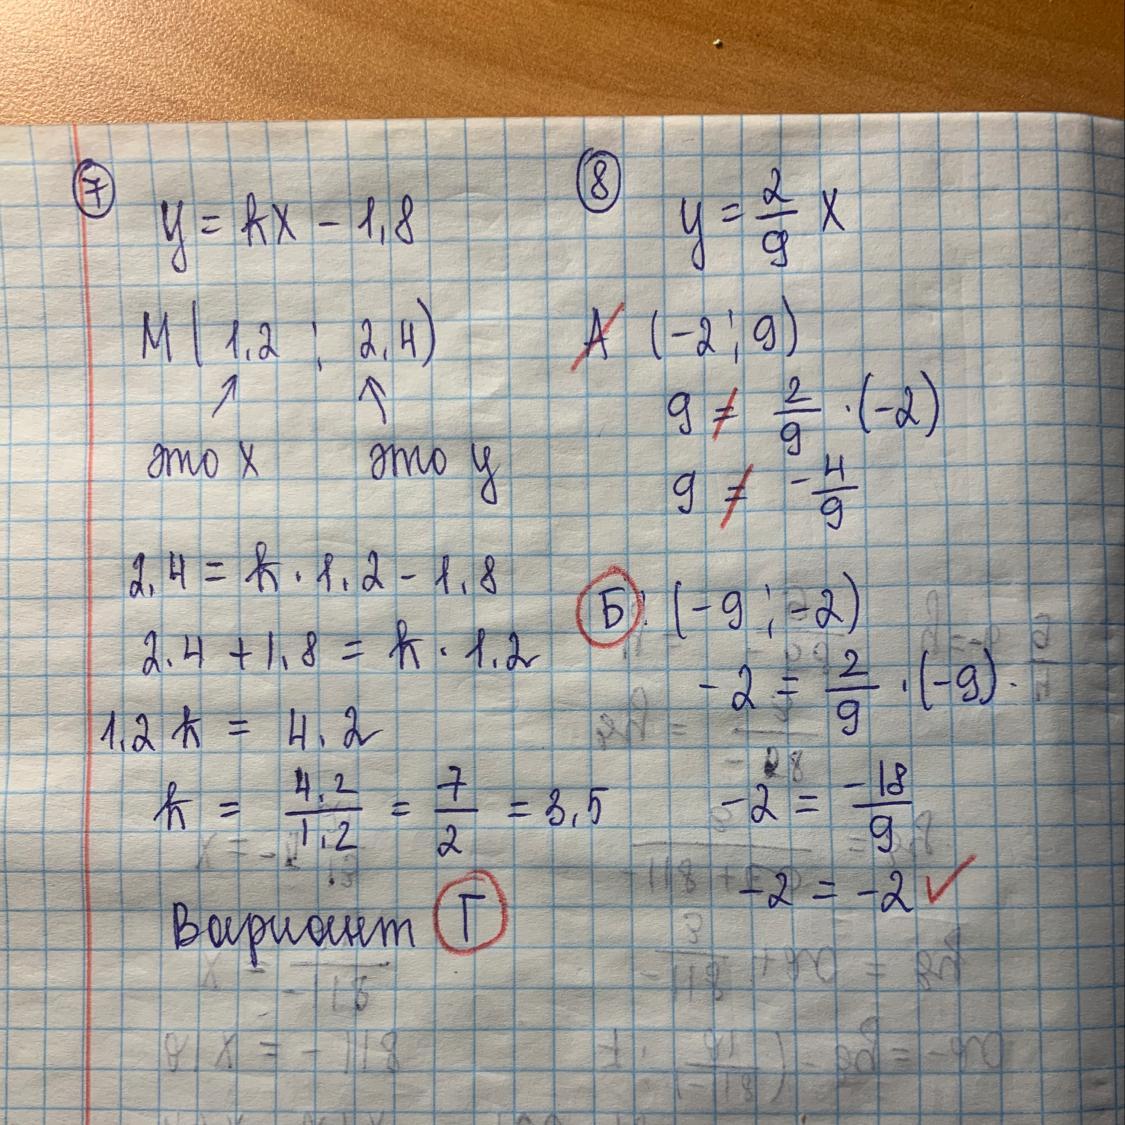 7
y = kx - 1,8
M ( 1,2 ; 2,4)
это x это y
2,4 = k · 1,2 - 1,8
2,4 + 1,8 = k · 1,2
1,2 k = 4,2
k = 4,2/1,2 = 7/2 = 3,5
Вариант Г
8
y = 2/9 x
А (-2 ; 9)
9 ≠ 2/9 · (-2)
9 ≠ -4/9
Б: (-9 ; -2)
-2 = 2/9 · (-9).
-2 = -18/9
-2 = -2 ✓